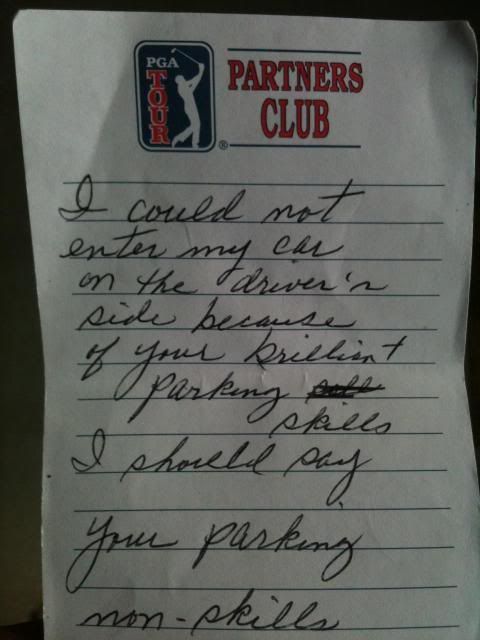 PGA
TOUR
®
PARTNERS
CLUB
I could not
enter my car
on the driver's
side because
of your brilliant
parking
skills
I should say
your parking
non-skills